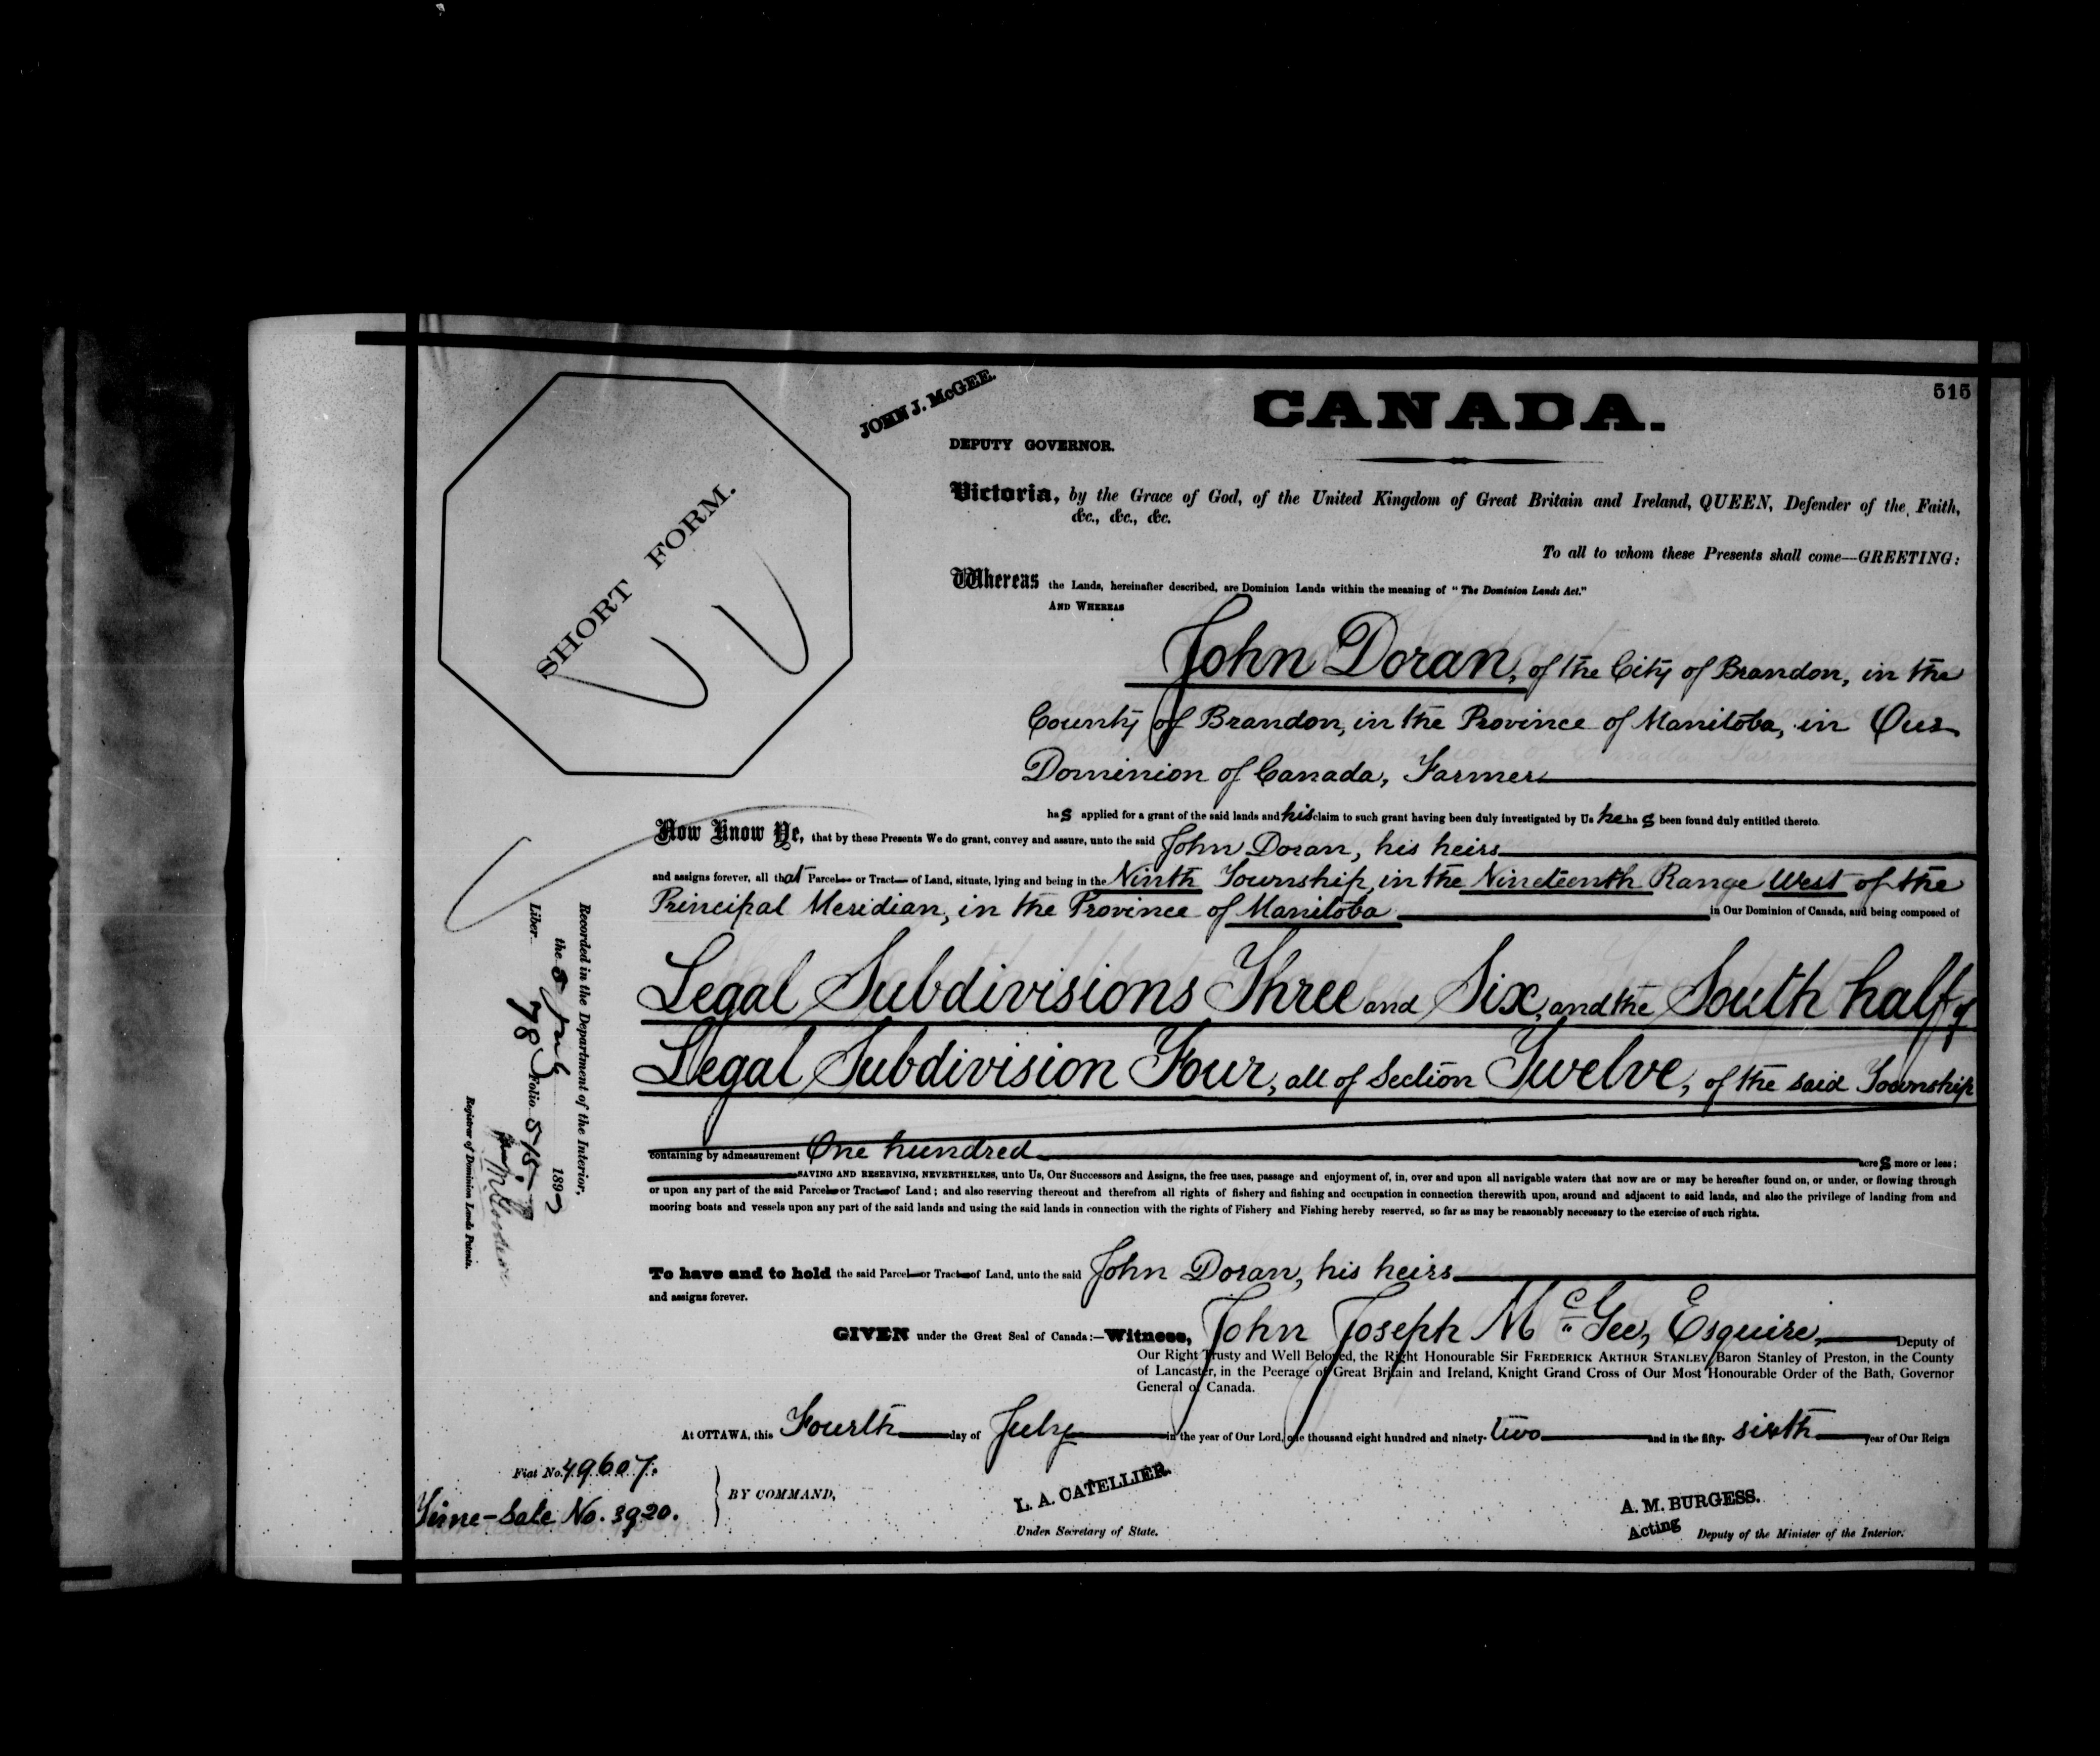 515
JOHN J. McGEE.
CANADA.
DEPUTY GOVERNOR.
SHORT FORM.
Victoria, by the Grace of God, of the United Kingdom of Great Britain and Ireland, QUEEN, Defender of the Faith,
&c., &c., &c.
To all to whom these Presents shall come—GREETING:
Whereas the Lands, hereinafter described, are Dominion Lands within the meaning of "The Dominion Lands Act."
AND WHEREAS
John Doran, of the City of Brandon, in the
County of Brandon, in the Province of Manitoba, in Our
Dominion of Canada, Farmer
has applied for a grant of the said lands and his claim to such grant having been duly investigated by Us he has been found duly entitled thereto.
Now Know Ye, that by these Presents We do grant, convey and assure, unto the said John Doran, his heirs
and assigns forever, all that Parcel or Tract of Land, situate, lying and being in the Ninth Township, in the Nineteenth Range West of the
Principal Meridian, in the Province of Manitoba in Our Dominion of Canada, and being composed of
Legal Subdivisions Three and Six, and the South half of
Legal Subdivision Four, all of Section Twelve, of the said Township
containing by admeasurement One hundred acres more or less;
SAVING AND RESERVING, NEVERTHELESS, unto Us, Our Successors and Assigns, the free uses, passage and enjoyment of, in, over and upon all navigable waters that now are or may be hereafter found on, or under, or flowing through
or upon any part of the said Parcel or Tract of Land; and also reserving thereout and therefrom all rights of fishery and fishing and occupation in connection therewith upon, around and adjacent to said lands, and also the privilege of landing from and
mooring boats and vessels upon any part of the said lands and using the said lands in connection with the rights of Fishery and Fishing hereby reserved, so far as may be reasonably necessary to the exercise of such rights.
To have and to hold the said Parcel or Tract of Land, unto the said John Doran, his heirs
and assigns forever.
GIVEN under the Great Seal of Canada:—Witness, John Joseph McGee, Esquire, Deputy of
Our Right Trusty and Well Beloved, the Right Honourable Sir FREDERICK ARTHUR STANLEY, Baron Stanley of Preston, in the County
of Lancaster, in the Peerage of Great Britain and Ireland, Knight Grand Cross of Our Most Honourable Order of the Bath, Governor
General of Canada.
At OTTAWA, this Fourth day of July in the year of Our Lord, one thousand eight hundred and ninety-two and in the fifty-sixth year of Our Reign
Fiat No. 49607.
Time-Sale No. 3920.
BY COMMAND,
L. A. CATELLIER.
Under Secretary of State.
A. M. BURGESS.
Acting Deputy of the Minister of the Interior.
Recorded in the Department of the Interior,
the 8 July 1892
Liber 78 Folio 515.
Registrar of Dominion Lands Patents.